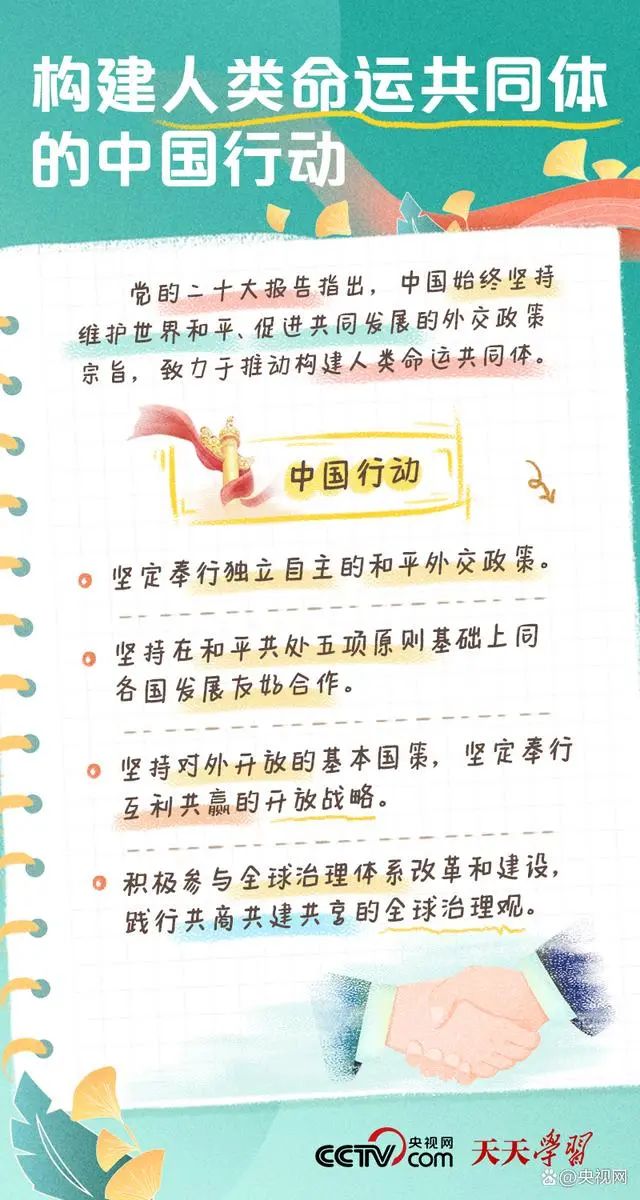 构建人类命运共同体
的中国行动
党的二十大报告指出，中国始终坚持
维护世界和平、促进共同发展的外交政策
宗旨，致力于推动构建人类命运共同体。
中国行动
坚定奉行独立自主的和平外交政策。
坚持在和平共处五项原则基础上同
各国发展友好合作。
坚持对外开放的基本国策，坚定奉行
互利共赢的开放战略。
积极参与全球治理体系改革和建设，
践行共商共建共享的全球治理观。
CCTV.com 央视网
天天学习
央视网